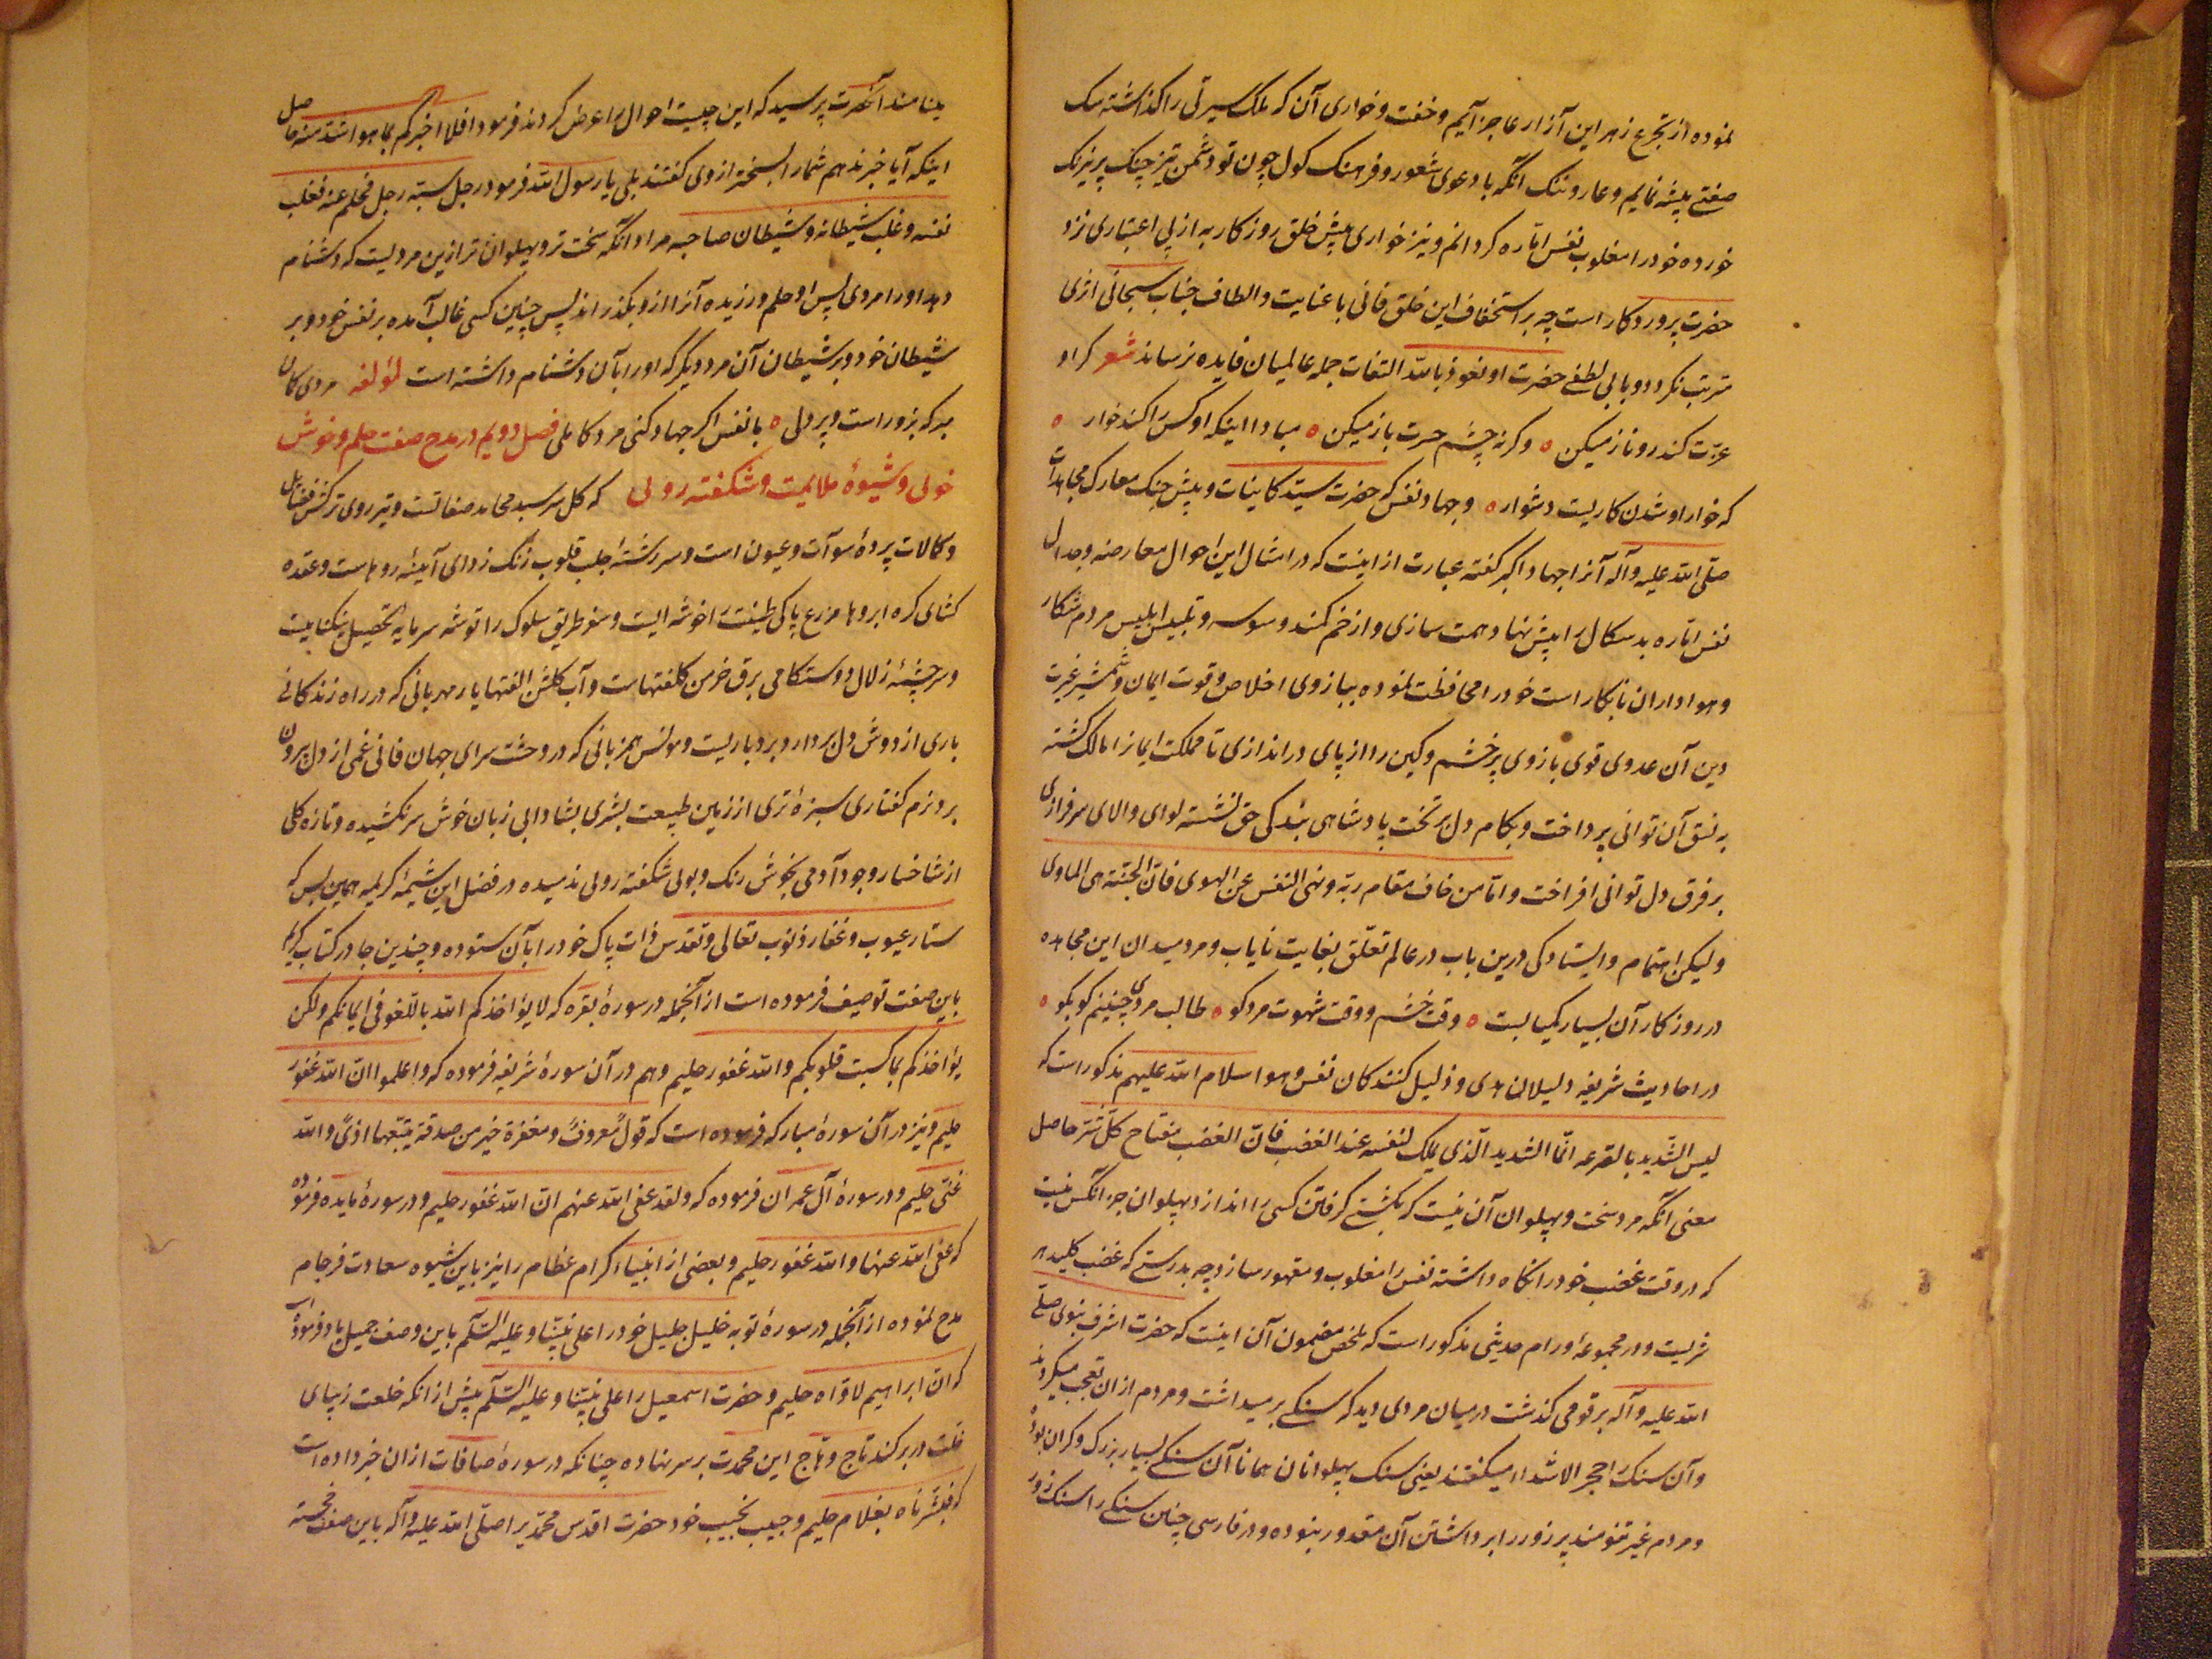 نموده از تجرع زهر این آزار عاجز آیم و خفت و خواری آن که ملک سیرتی را گذاشته سک
صفتی پیشه نمایم و عار و ننک آنکه با دعوی شعور و فرهنک کول چون تو دشمن تیز چنک پر نیرنک
خورده خود را مغلوب نفس اماره کردانم و نیز خواری پیش خلق روزکار به از بی اعتباری نزد
حضرت پروردکار است چه بر استخفاف این خلق فانی با عنایت و الطاف جناب سبحانی اثری
مترتب نکردد و با بی لطفی حضرت او نعوذ بالله التفات جمله عالمیان فایده نرساند شعر کر او
عزت کند رو ناز میکن ه وکرنه چشم حسرت باز میکن ه مبادا اینکه او کس را کند خوار ه
که خوار او شدن کاریست دشوار ه و جهاد نفس که حضرت سید کاینات و پیش جنک معارک مجاهدات
صلی الله علیه و آله آنرا جهاد اکبر کفته عبارت از اینست که در امثال این احوال معارضه و جدال
نفس اماره بد سکال را پیش نهاد همت سازی و از خم کمند وسوسه و تلبیس ابلیس مردم شکار
و هواداران نابکار است خود را محافظت نموده ببازوی اخلاص و قوت ایمان و شمشیر غیرت
دین آن عدوی قوی بازوی پر خشم و کین را از پای در اندازی تا مملکت ایمانرا مالک کشته
به نسق آن توانی پرداخت و بکام دل بر تخت پادشاهی بندکی حق نشسته لوای والای سرفرازی
بر فرق دل توانی افراخت و اما من خاف مقام ربه و نهی النفس عن الهوی فان الجنة هی الماوی
ولیکن اهتمام و ایستادکی درین باب در عالم تعلق بغایت نایاب و مرد میدان این مجاهده
در روزکار آن بسیار کمیابست ه وقت خشم و وقت شهوت مرد کو ه طالب مردی چنینم کو بکو ه
در احادیث شریفه دلیلان هدی و ذلیل کنندکان نفس و هوا سلام الله علیهم مذکور است که
لیس الشدید بالصرعه انما الشدید الذی یملک لنفسه عند الغضب فان الغضب مفتاح کل شر حاصل
معنی آنکه مرد سخت و پهلوان آن نیست که بکشتی کرفتن کسی را اندازد پهلوان جز آنکس نیست
که در وقت غضب خود را نکاه داشته نفس را مغلوب و مقهور سازد چه بدرستی که غضب کلید هر
شریست و در مجموعهٔ ورام حدیثی مذکور است که ملخص مضمون آن اینست که حضرت اشرف نبوی صلی
الله علیه و آله بر قومی کذشت در میان مردی دید که سنکی برمیداشت و مردم از ان تعجب میکردند
و آن سنک را حجر الاشداء میکفتند یعنی سنک پهلوانان همانا آن سنکی بسیار بزرک و کران بوده
و مردم غیر تنومند پر زور را برداشتن آن مقدور نبوده و در فارسی چنان سنکی را سنک زور
مینامند آنحضرت پرسید که این چیست احوال را عرض کردند فرمود افلا اخبرکم بما هو اشد منه حاصل
اینکه آیا خبر ندهم شما را بسخت‌تر ازوی کفتند بلی یا رسول الله فرمود رجل سبه رجل فحلم عنه فغلب
نفسه و غلب شیطانه و شیطان صاحبه مراد آنکه سخت‌تر و پهلوان‌تر ازین مردیست که دشنام
دهد او را مردی پس او حلم ورزیده آنرا ازو بکذراند پس چنین کسی غالب آمده بر نفس خود و بر
شیطان خود و بر شیطان آن مرد دیکر که او را بآن دشنام داشته است لمؤلفه مردی کمان
مبر که بزور است و پر دلی ه با نفس اکر جهاد کنی مرد کاملی فصل دویم در مدح صفت حلم و خوش
خوئی و شیوهٔ ملایمت و شکفته روئی که کل سر سبد محامد صفاتست و تیر روی ترکش فضایل
و کمالات پردهٔ سوآت و عیون است و سر رشتهٔ جلب قلوب زنک زدای آیینهٔ روهاست و عقده
کشای کره ابروها مزرع پاکی طینت را خوشه ایست و سفر طریق سلوک را توشه سرمایه تحصیل نیکنامیست
و سرچشمهٔ زلال دوستکامی برق خرمن کلفتهاست و آب کلشن الفتها یار مهربانی که در راه زندکانی
باری از دوش دل بردارد بردباریست و مونس همزبانی که در وحشت سرای جهان فانی غمی از دل بیرون
برد نرم کفتاری سبزهٔ تری از زمین طبیعت بشری بشادابی زبان خوش سر نکشیده و تازه کلی
از شاخسار وجود آدمی بخوش رنک و بوئی شکفته روئی ندمیده در فضل این شیمهٔ کریمه همین بس که
ستار عیوب و غفار ذنوب تعالی و تقدس ذات پاک خود را بآن ستوده و چندین جا در کتاب کریم
باین صفت توصیف فرموده است از آنجمله در سورهٔ بقره که لا یؤاخذکم الله باللغو فی ایمانکم ولکن
یؤاخذکم بما کسبت قلوبکم والله غفور حلیم و هم در آن سورهٔ شریفه فرموده که واعلموا ان الله غفور
حلیم و نیز در آن سورهٔ مبارکه فرموده است که قول معروف و مغفرة خیر من صدقة یتبعها اذی والله
غنی حلیم و در سورهٔ آل عمران فرموده که ولقد عفی الله عنهم ان الله غفور حلیم و در سورهٔ مایده فرموده
که عفی الله عنها والله غفور حلیم و بعضی از انبیاء کرام عظام را نیز باین شیوه سعادت فرجام
مدح نموده از آنجمله در سورهٔ توبه خلیل جلیل خود را علی نبینا و علیه السلام باین وصف جمیل یاد فرموده
که ان ابراهیم لاواه حلیم و حضرت اسمعیل را علی نبینا و علیه السلام پیش از آنکه خلعت زیبای
خلت در بر کند تاج وهاج این محمدت بر سر نهاده چنانکه در سورهٔ صافات از ان خبر داده است
که فبشرناه بغلام حلیم و حبیب نجیب خود حضرت اقدس محمدیرا صلی الله علیه و آله باین صفت خجسته